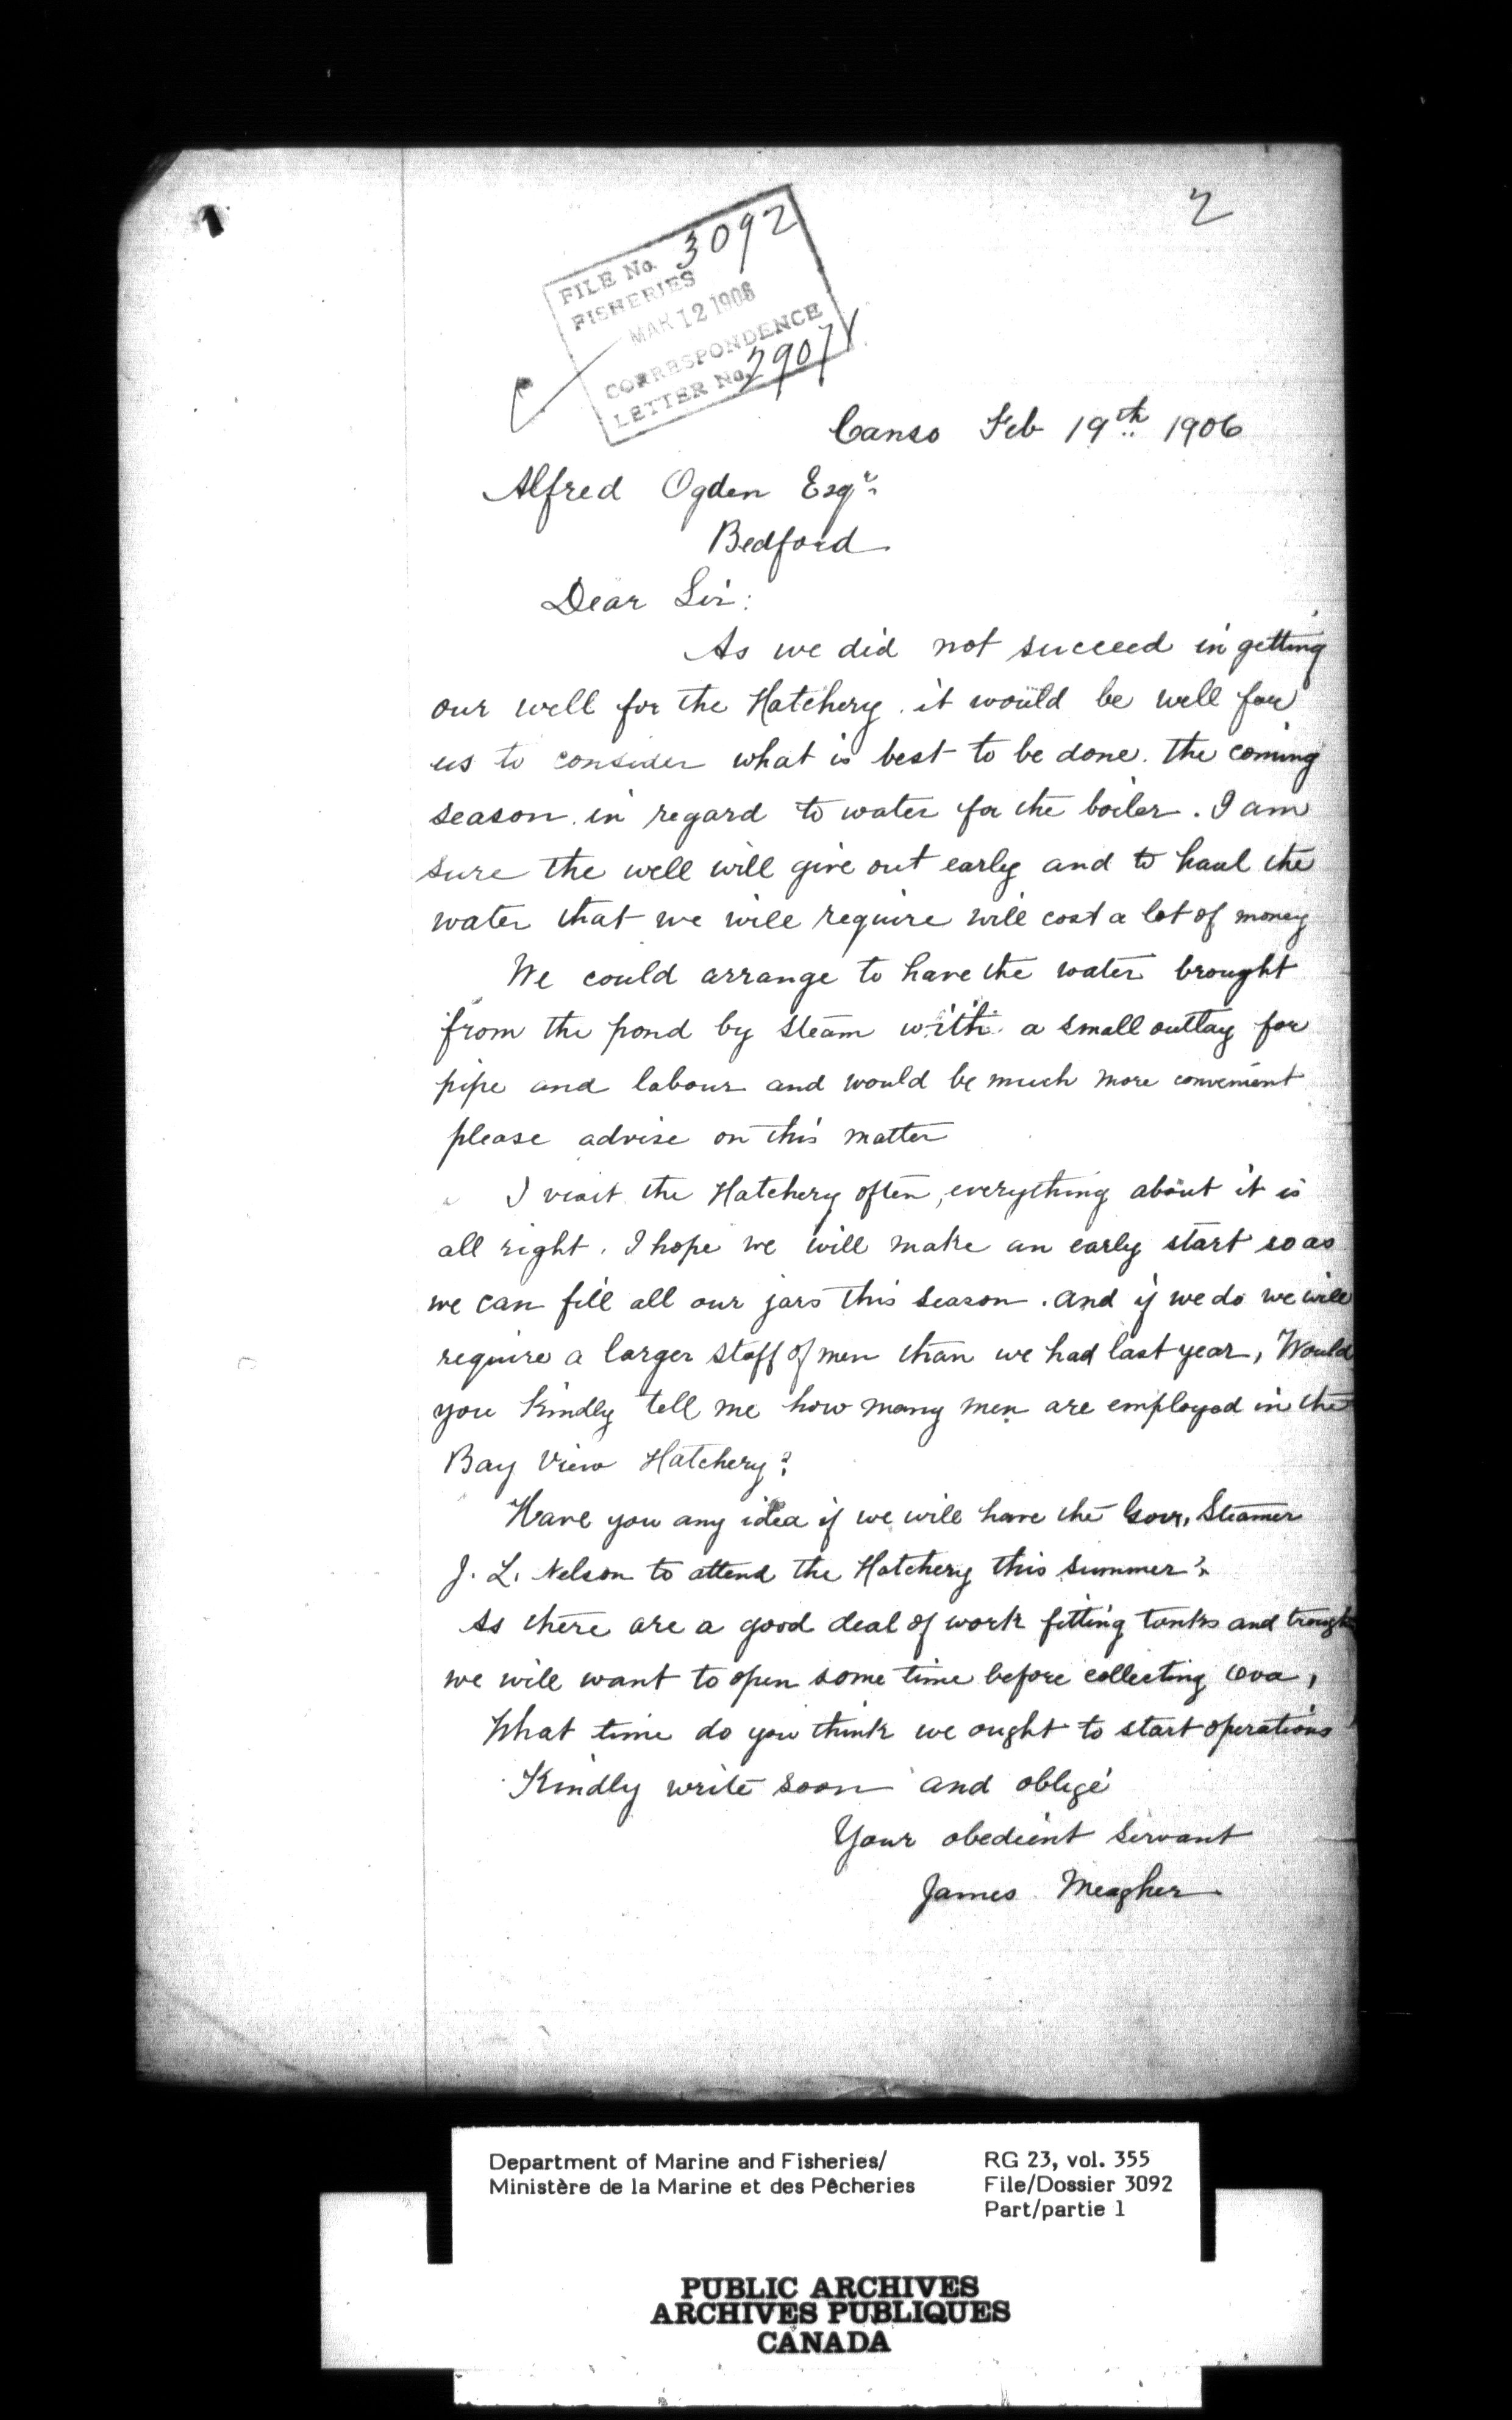 2
FILE No. 3092
FISHERIES
MAR 12 1906
CORRESPONDENCE
LETTER No. 2907
Canso Feb 19th 1906
Alfred Ogden Esqr.
Bedford
Dear Sir:
As we did not succeed in getting
our well for the Hatchery. it would be well for
us to consider what is best to be done. the coming
season. in regard to water for the boiler. I am
sure the well will give out early and to haul the
water that we will require will cost a lot of money
We could arrange to have the water brought
from the pond by steam with a small outlay for
pipe and labour and would be much more convenient
please advise on this matter
I visit the Hatchery often, everything about it is
all right. I hope we will make an early start so as
we can fill all our jars this season. and if we do we will
require a larger staff of men than we had last year, Would
you kindly tell me how many men are employed in the
Bay View Hatchery?
Have you any idea if we will have the Govr, Steamer
J. L. Nelson to attend the Hatchery this summer?
As there are a good deal of work fitting tanks and trough
we will want to open some time before collecting ova,
What time do you think we ought to start operations
Kindly write soon and oblige
Your obedient servant
James Meagher
Department of Marine and Fisheries/
Ministère de la Marine et des Pêcheries
RG 23, vol. 355
File/Dossier 3092
Part/partie 1
PUBLIC ARCHIVES
ARCHIVES PUBLIQUES
CANADA